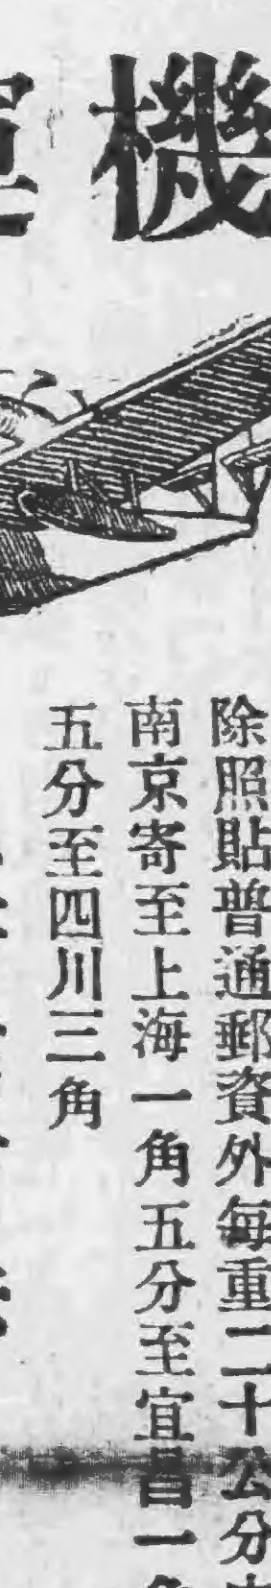 機
除照貼普通郵資外每重二十公分
南京寄至上海一角五分至宜昌一
五分至四川三角